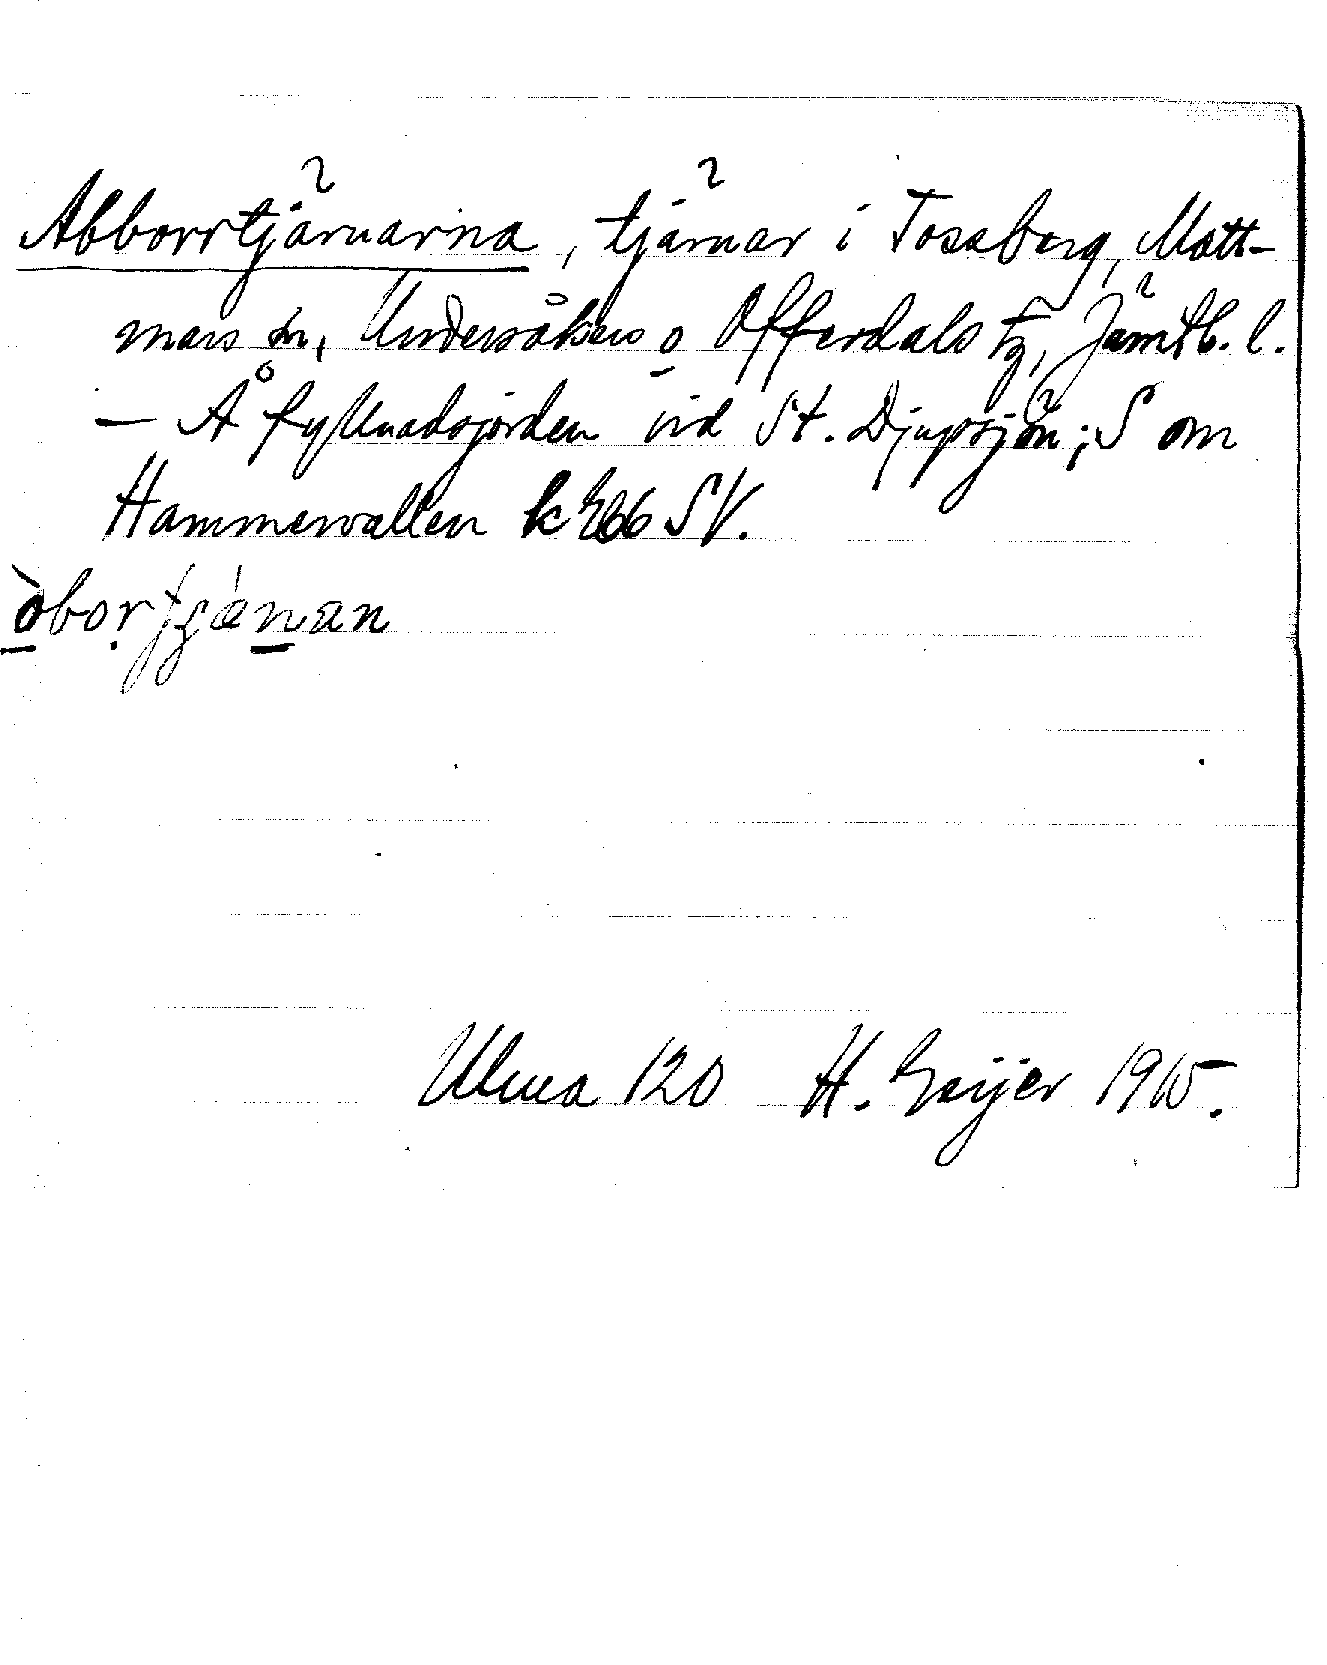 Abborrtjärnarna, tjärnar i Tossberg, Matt-
mars sn, Undersåkers o Offerdals tg, Jämtl. l.
— Å fyllnadsjorden vid St. Djupsjön; S om
Hammarvallen k Ebb SV.
Ulma 120 H. Geijer 1915.